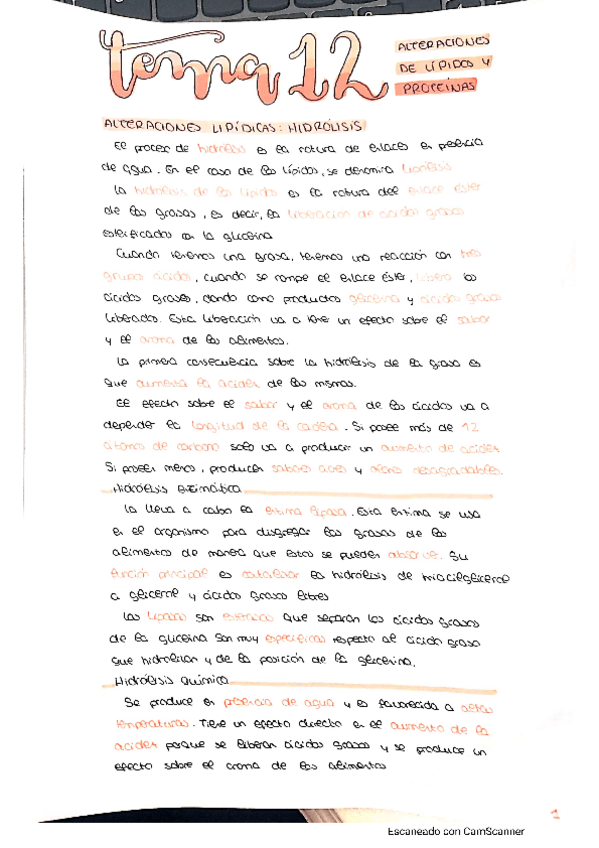 tema 12
ALTERACIONES
DE LÍPIDOS Y
PROTEÍNAS
ALTERACIONES LIPÍDICAS: HIDRÓLISIS
El proceso de hidrólisis es la rotura de enlaces en presencia
de agua. En el caso de los lípidos, se denomina lipólisis
La hidrólisis de los lípidos es la rotura del enlace éster
de las grasas, es decir, la liberación de ácidos grasos
esterificados con la glicerina
Cuando tenemos una grasa, tenemos una reacción con tres
grupos ácidos, cuando se rompe el enlace éster, libera los
ácidos grasos, dando como productos glicerina y ácidos grasos
liberados. Esta liberación va a tener un efecto sobre el sabor
y el aroma de los alimentos.
La primera consecuencia sobre la hidrólisis de la grasa es
que aumenta la acidez de las mismas.
El efecto sobre el sabor y el aroma de los ácidos va a
depender la longitud de la cadena. Si posee más de 12
átomos de carbono solo va a producir un aumento de acidez
Si poseen menos, producen sabores acres y olores desagradables.
Hidrólisis enzimática
La lleva a cabo la enzima lipasa. Esta enzima se usa
en el organismo para disgregar las grasas de los
alimentos de manera que estas se pueden absorber. Su
función principal es catalizar la hidrólisis de triacilglicerol
a glicerol y ácidos grasos libres
Las lipasas son enzimas que separan los ácidos grasos
de la glicerina son muy específicas respecto al ácido graso
que hidrolizan y de la posición de la glicerina.
Hidrólisis química
Se produce en presencia de agua y es favorecida a altas
temperaturas. Tiene un efecto directo en el aumento de la
acidez porque se liberan ácidos grasos y se produce un
efecto sobre el aroma de los alimentos
1
Escaneado con CamScanner